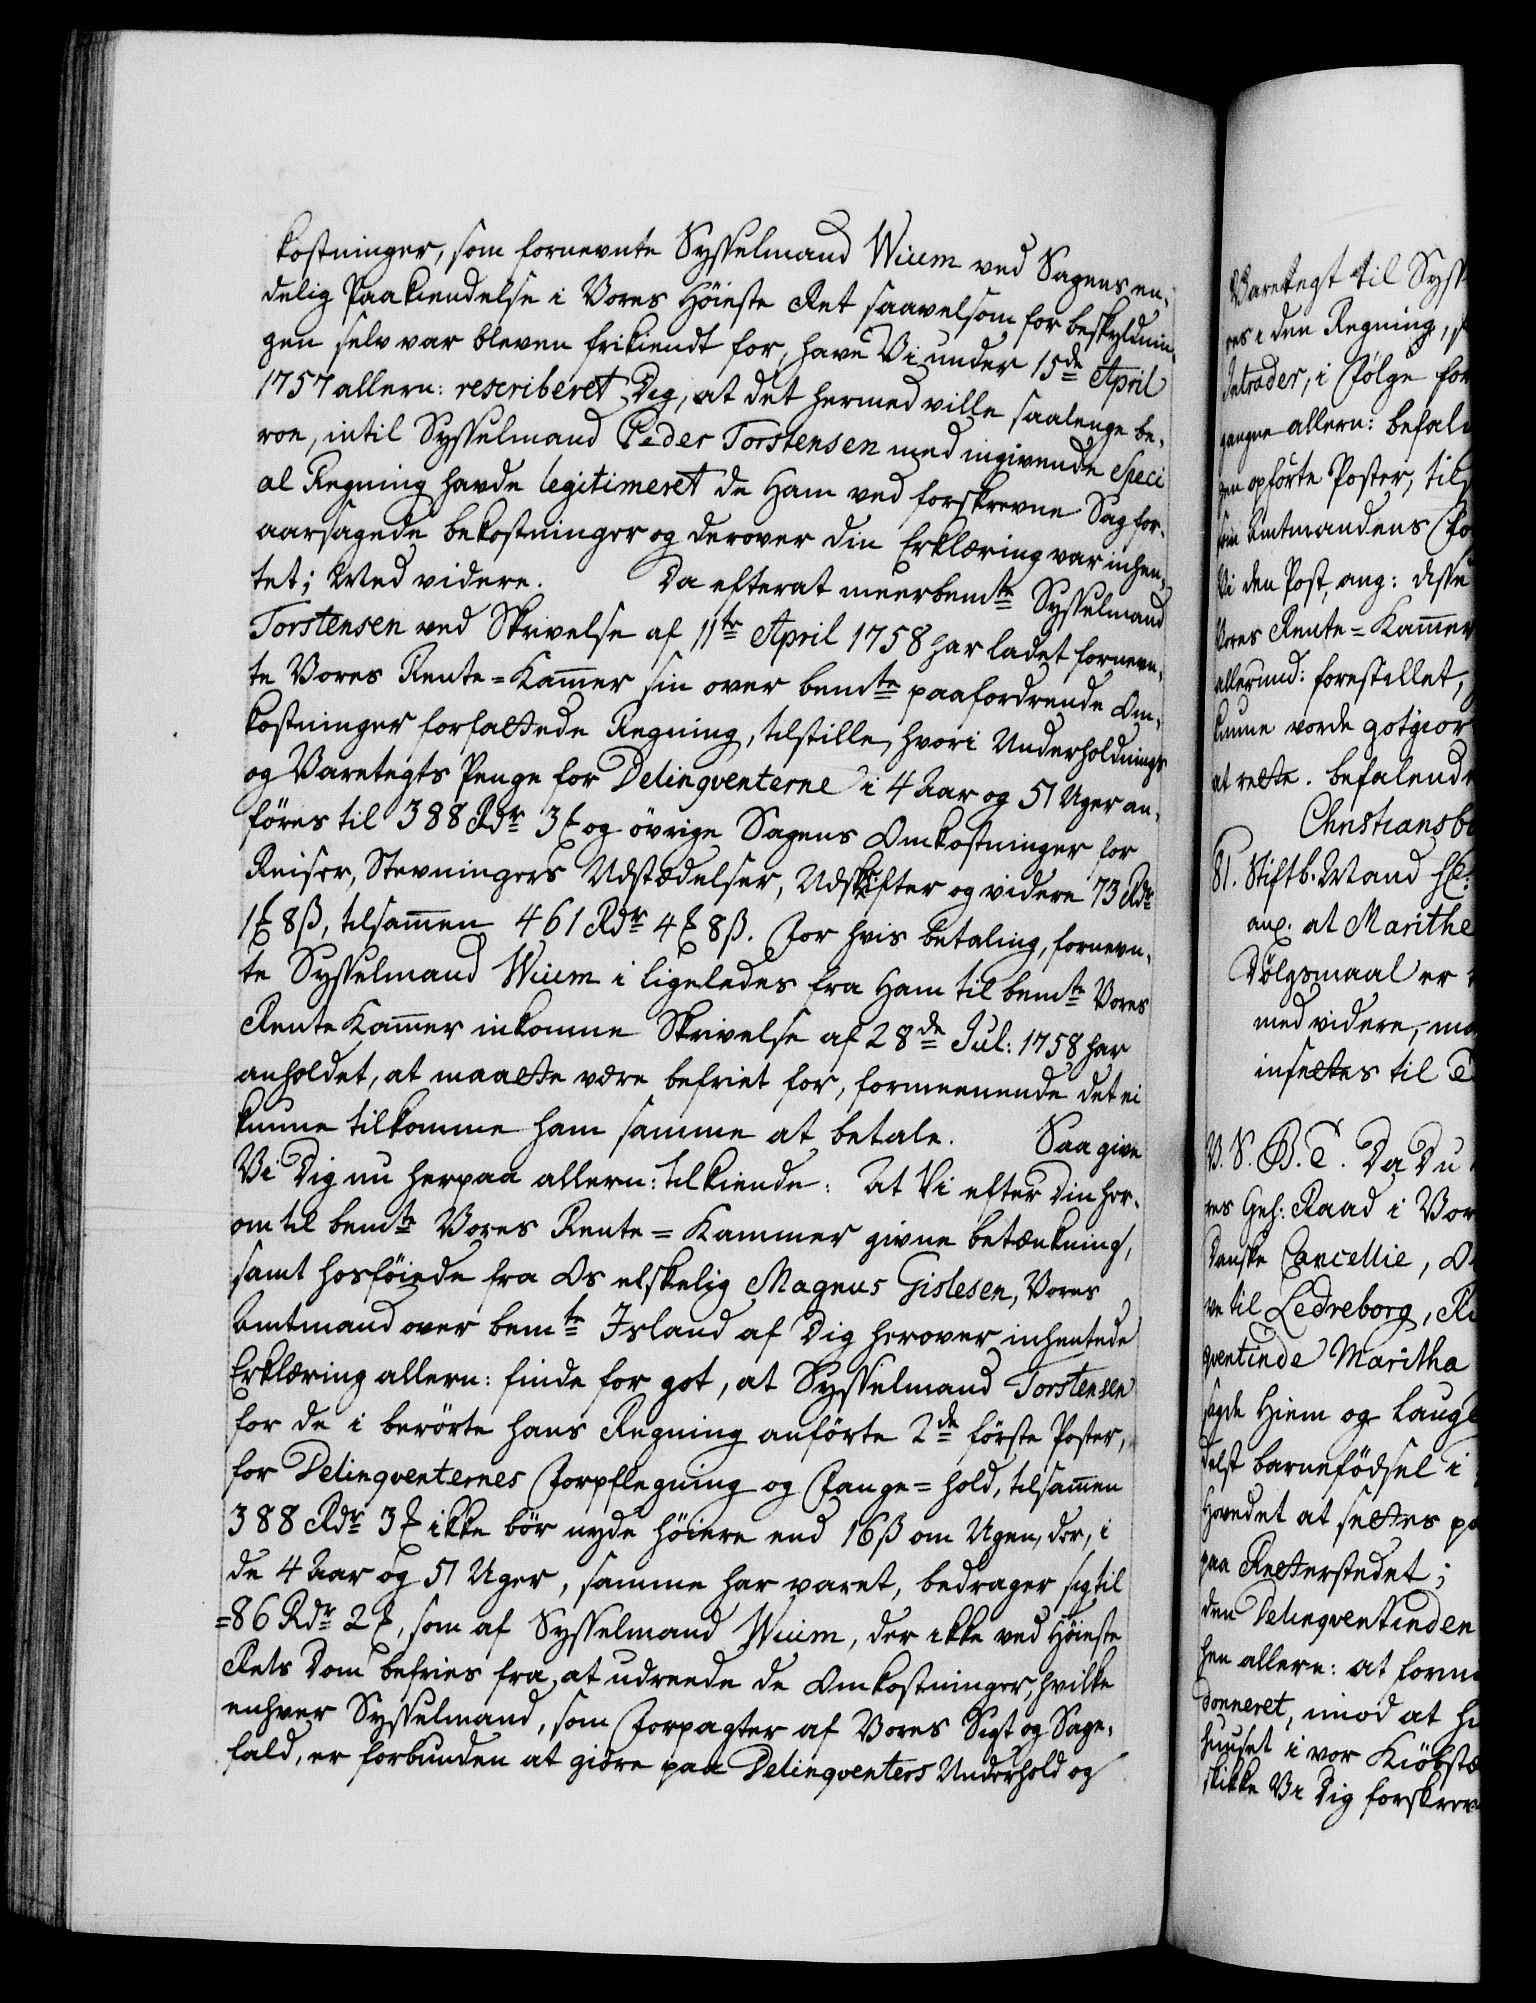 kostninger, som fornevnte Sysselmand Wium ved Sagens en-
delig Paakiendelse i Vores Høieste Ret saavelsom for beskyldnin-
gen selv var bleven frikiendt for, have Vi under 15de April
1757 allern: rescriberet Dig, at det hermed ville saalenge be-
roe, intil Sysselmand Peder Torstensen med ingivende Speci
al Regning havde legitimeret de Ham ved forskrevne Sag for-
aarsagede bekostninger og derover din Erklæring var inhen-
tet; Med videre. Da efterat meerbemte Sysselmand
Torstensen ved Skrivelse af 11te April 1758 har ladet fornevn-
te Vores Rente=Kammer sin over bemte paafordrende Om-
kostninger forfattede Regning, tilstille, hvori Underholdnings
og Varetegts Penge for Delinqventerne i 4 Aar og 51 Uger an-
føres til 388 Rdr 3 ₰ og övrige Sagens Omkostninger for
Reiser, Stevningers Udstædelser, Udskrifter og videre 73 Rdr
1 ₰ 8 ß, tilsammen 461 Rdr 4 ₰ 8 ß. For hvis betaling, fornevn-
te Sysselmand Wium i ligeledes fra Ham til bemte Vores
Rente Kammer inkomne Skrivelse af 28de Jul: 1758 har
anholdet, at maatte være befriet for, formeenende det ei
kunne tilkomme ham samme at betale. Saa give
Vi Dig nu herpaa allern: tilkiende: At Vi efter Din her-
om til bemte Vores Rente=Kammer givne betænkning,
samt hosföiede fra Os elskelig Magnus Gislesen, Vores
Amtmand over bemte Island af Dig herover inhentede
Erklæring allern: finde for got, at Sysselmand Torstensen
for de i berörte hans Regning anförte 2de förste Poster,
for Delinqventernes Forpflegning og Fange=hold, tilsammen
388 Rdr 3 ₰ ikke bör nyde höiere end 16 ß om Ugen, der, i
de 4 Aar og 51 Uger, samme har varet, bedrager sig til
=86 Rdr 2 ₰, som af Sysselmand Wium, der ikke ved Höieste
Rets Dom befries fra, at udreede de Omkostninger, hvilke
enhver Sysselmand, som Forpagter af Vores Sigt og Sage-
fald, er forbunden at giöre paa Delinqventers Underhold og
Varetegt til Syss
res i den Regning, s
Intrader, i Følge for
gangne allern: befal
gen opförte Poster, til
som Amtmandens Fo
Vi den Post, ang: disse
Vores Rente=Kammer
allerund: forestillet,
kunne vorde gotgior
at rette. befalend
Christiansbo
81. Stiftb. Mand
anx. at Marithe
Dølgsmaal er
med videre, ma
insettes til
V. S. B. T. Da Du
res Geh: Raad i Vor
Danske Cancellie, O
ve til Ledreborg, Ri
qventinde Maritha
sögte Hiem og Laugl
delst barnefödsel i
Hovedet at settes pa
paa Retterstedet;
den Delinqventinden
hen allern: at formi
donneret, imod at hu
huuset i vor Kiöbstæ
skikke Vi Dig forskrev